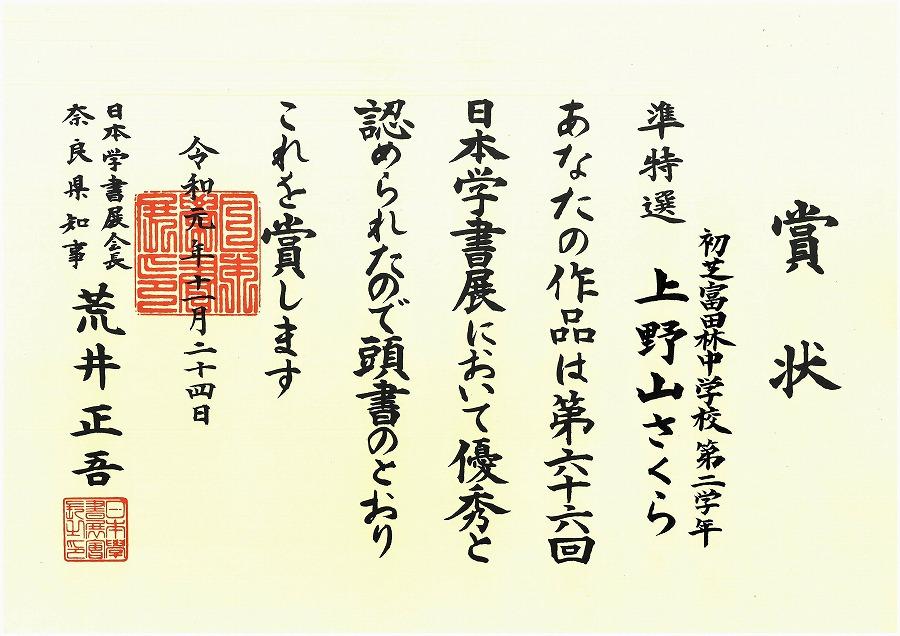 賞状
初芝富田林中学校 第二学年
準特選 上野山さくら
あなたの作品は第六十六回
日本学書展において優秀と
認められたので頭書のとおり
これを賞します
令和元年十一月二十四日
日本学書展会長
奈良県知事 荒井正吾